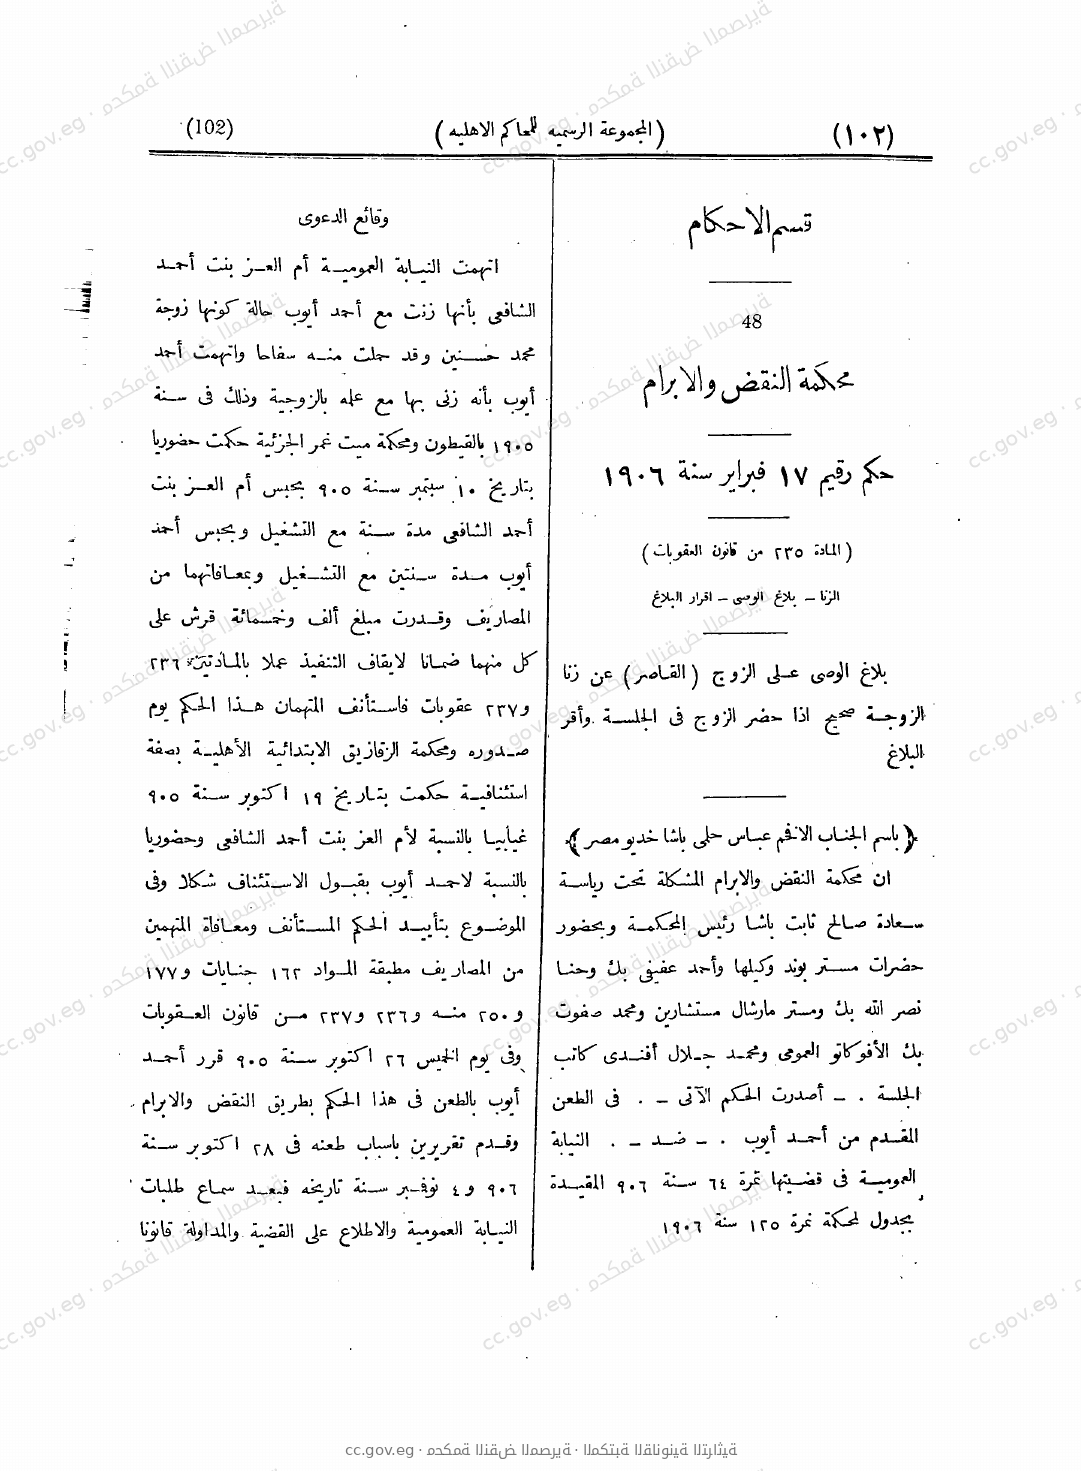 (١٠٢)
(المجموعة الرسميه للمحاكم الاهليه)
(102)
قسم الاحكام
48
محكمة النقض والابرام
حكم رقيم ١٧ فبراير سنة ١٩٠٦
(المادة ٢٣٥ من قانون العقوبات)
الزنا – بلاغ الوصى – اقرار البلاغ
بلاغ الوصى على الزوج (القاصر) عن زنا
الزوجة صحيح اذا حضر الزوج فى الجلسة وأقر
البلاغ
﴿باسم الجناب الافخم عباس حلمى باشا خديو مصر﴾
ان محكمة النقض والابرام المشكلة تحت رياسة
سعادة صالح ثابت باشا رئيس المحكمة وبحضور
حضرات مستر بوند وكيلها وأحمد عفيفى بك وحنا
نصر الله بك ومستر مارشال مستشارين ومحمد صفوت
بك الأفوكاتو العمومى ومحمد جلال أفندى كاتب
الجلسة . – أصدرت الحكم الآتى – . فى الطعن
المقدم من أحمد أيوب . – ضد – . النيابة
العمومية فى قضيتها نمرة ٦٤ سنة ٩٠٦ المقيدة
بجدول المحكمة نمرة ١٢٥ سنة ١٩٠٦
وقائع الدعوى
اتهمت النيابة العمومية أم العز بنت أحمد
الشافعى بأنها زنت مع أحمد أيوب حالة كونها زوجة
محمد حسنين وقد حملت منه سفاحا واتهمت أحمد
أيوب بأنه زنى بها مع علمه بالزوجية وذلك فى سنة
١٩٠٥ بالقيطون ومحكمة ميت غمر الجزئية حكمت حضوريا
بتاريخ ١٠ سبتمبر سنة ٩٠٥ بحبس أم العز بنت
أحمد الشافعى مدة سنة مع التشغيل وبحبس أحمد
أيوب مدة سنتين مع التشغيل وبمعافاتهما من
المصاريف وقدرت مبلغ ألف وخمسمائة قرش على
كل منهما ضمانا لايقاف التنفيذ عملا بالمادتين ٢٣٦
و٢٣٧ عقوبات فاستأنف المتهمان هذا الحكم يوم
صدوره ومحكمة الزقازيق الابتدائية الأهلية بصفة
استئنافية حكمت بتاريخ ١٩ اكتوبر سنة ٩٠٥
غيابيا بالنسبة لأم العز بنت أحمد الشافعى وحضوريا
بالنسبة لاحمد أيوب بقبول الاستئناف شكلا وفى
الموضوع بتأييد الحكم المستأنف ومعافاة المتهمين
من المصاريف مطبقة المواد ١٦٢ جنايات و١٧٧
و٢٥٠ منه و٢٣٦ و٢٣٧ من قانون العقوبات
وفى يوم الخميس ٢٦ اكتوبر سنة ٩٠٥ قرر أحمد
أيوب بالطعن فى هذا الحكم بطريق النقض والابرام
وقدم تقريرين باسباب طعنه فى ٢٨ اكتوبر سنة
٩٠٦ و٤ نوفمبر سنة تاريخه فبعد سماع طلبات
النيابة العمومية والاطلاع على القضية والمداولة قانونا
cc.gov.eg · محكمة النقض المصرية · المكتبة القانونية التراثية